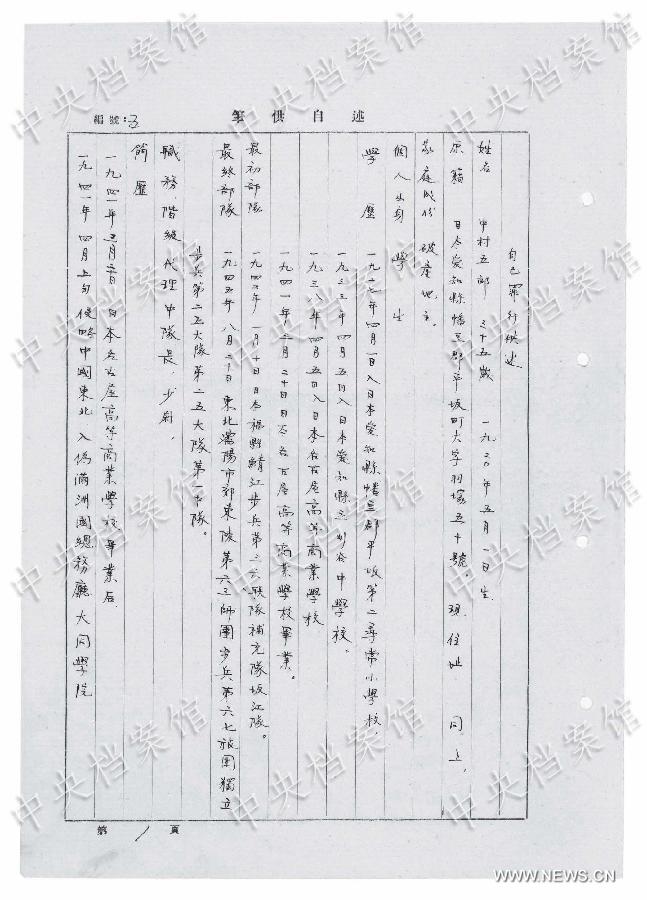 述自供笔
編號:3
自己罪行供述
姓名 中村五郎 三十五歲 一九二〇年五月一日生
原籍 日本愛知縣幡豆郡平坂町大字羽塚五十號。現住址 同上。
家庭成份 破產地主
個人出身 學生
學歷 一九二七年四月一日入日本愛知縣幡豆郡平坂第二尋常小學校、
一九三三年四月五日入日本愛知縣立刈谷中學校、
一九三八年四月五日入日本名古屋高等商業學校
一九四一年三月二十日日本名古屋高等商業學校畢業。
最初部隊 一九四三年一月十日日本福井縣鯖江步兵第三六聯隊補充隊坂江隊。
最終部隊 一九四五年八月二十日東北瀋陽市郊東陵第六三師團步兵第六七旅團獨立
步兵第二五大隊第二五大隊第一中隊。
職務、階級 代理中隊長、少尉、
簡歷
一九四一年三月 日日本名古屋高等商業學校畢業后
一九四一年四月上旬侵略中國東北入偽滿洲國總務廳大同學院
第1頁
中央档案馆
中央档案馆
中央档案馆
中央档案馆
中央档案馆
中央档案馆
中央档案馆
中央档案馆
WWW.NEWS.CN